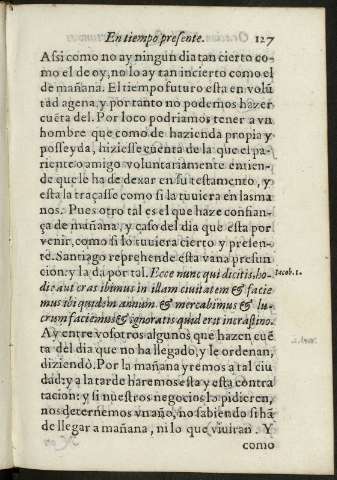 En tiempo presente. 127
Assi como no ay ningun dia tan cierto co-
mo el de oy, no lo ay tan incierto como el
de mañana. El tiempo futuro esta en volũ
tad agena, y por tanto no podemos hazer
cuẽta del. Por loco podriamos tener a vn
hombre que como de hazienda propia y
posseyda, hiziesse cuenta de la que el pa-
riente o amigo voluntariamente entien-
de que le ha de dexar en su testamento, y
esta la traçasse como si la tuuiera en las ma
nos. Pues otro tal es el que haze confian-
ça de mañana, y caso del dia que esta por
venir, como si lo tuuiera cierto y presen-
te. Santiago reprehende esta vana presun
cion: y la da por tal. Ecce nunc qui dicitis, ho-
die aut cras ibimus in illam ciuitatem & facie
mus ibi quidem annum. & mercabimur & lu-
crum faciemus & ignoratis quid erit in crastino.
Ay entre vosotros algunos que hazen cuẽ
ta del dia que no ha llegado, y le ordenan,
diziendo. Por la mañana yremos a tal ciu
dad: y a la tarde haremos esta y esta contra
tacion: y si nuestros negocios lo pidieren,
nos deternemos vn año, no sabiendo si hã
de llegar a mañana, ni lo que viuiran. Y
como
Iacob. 1.